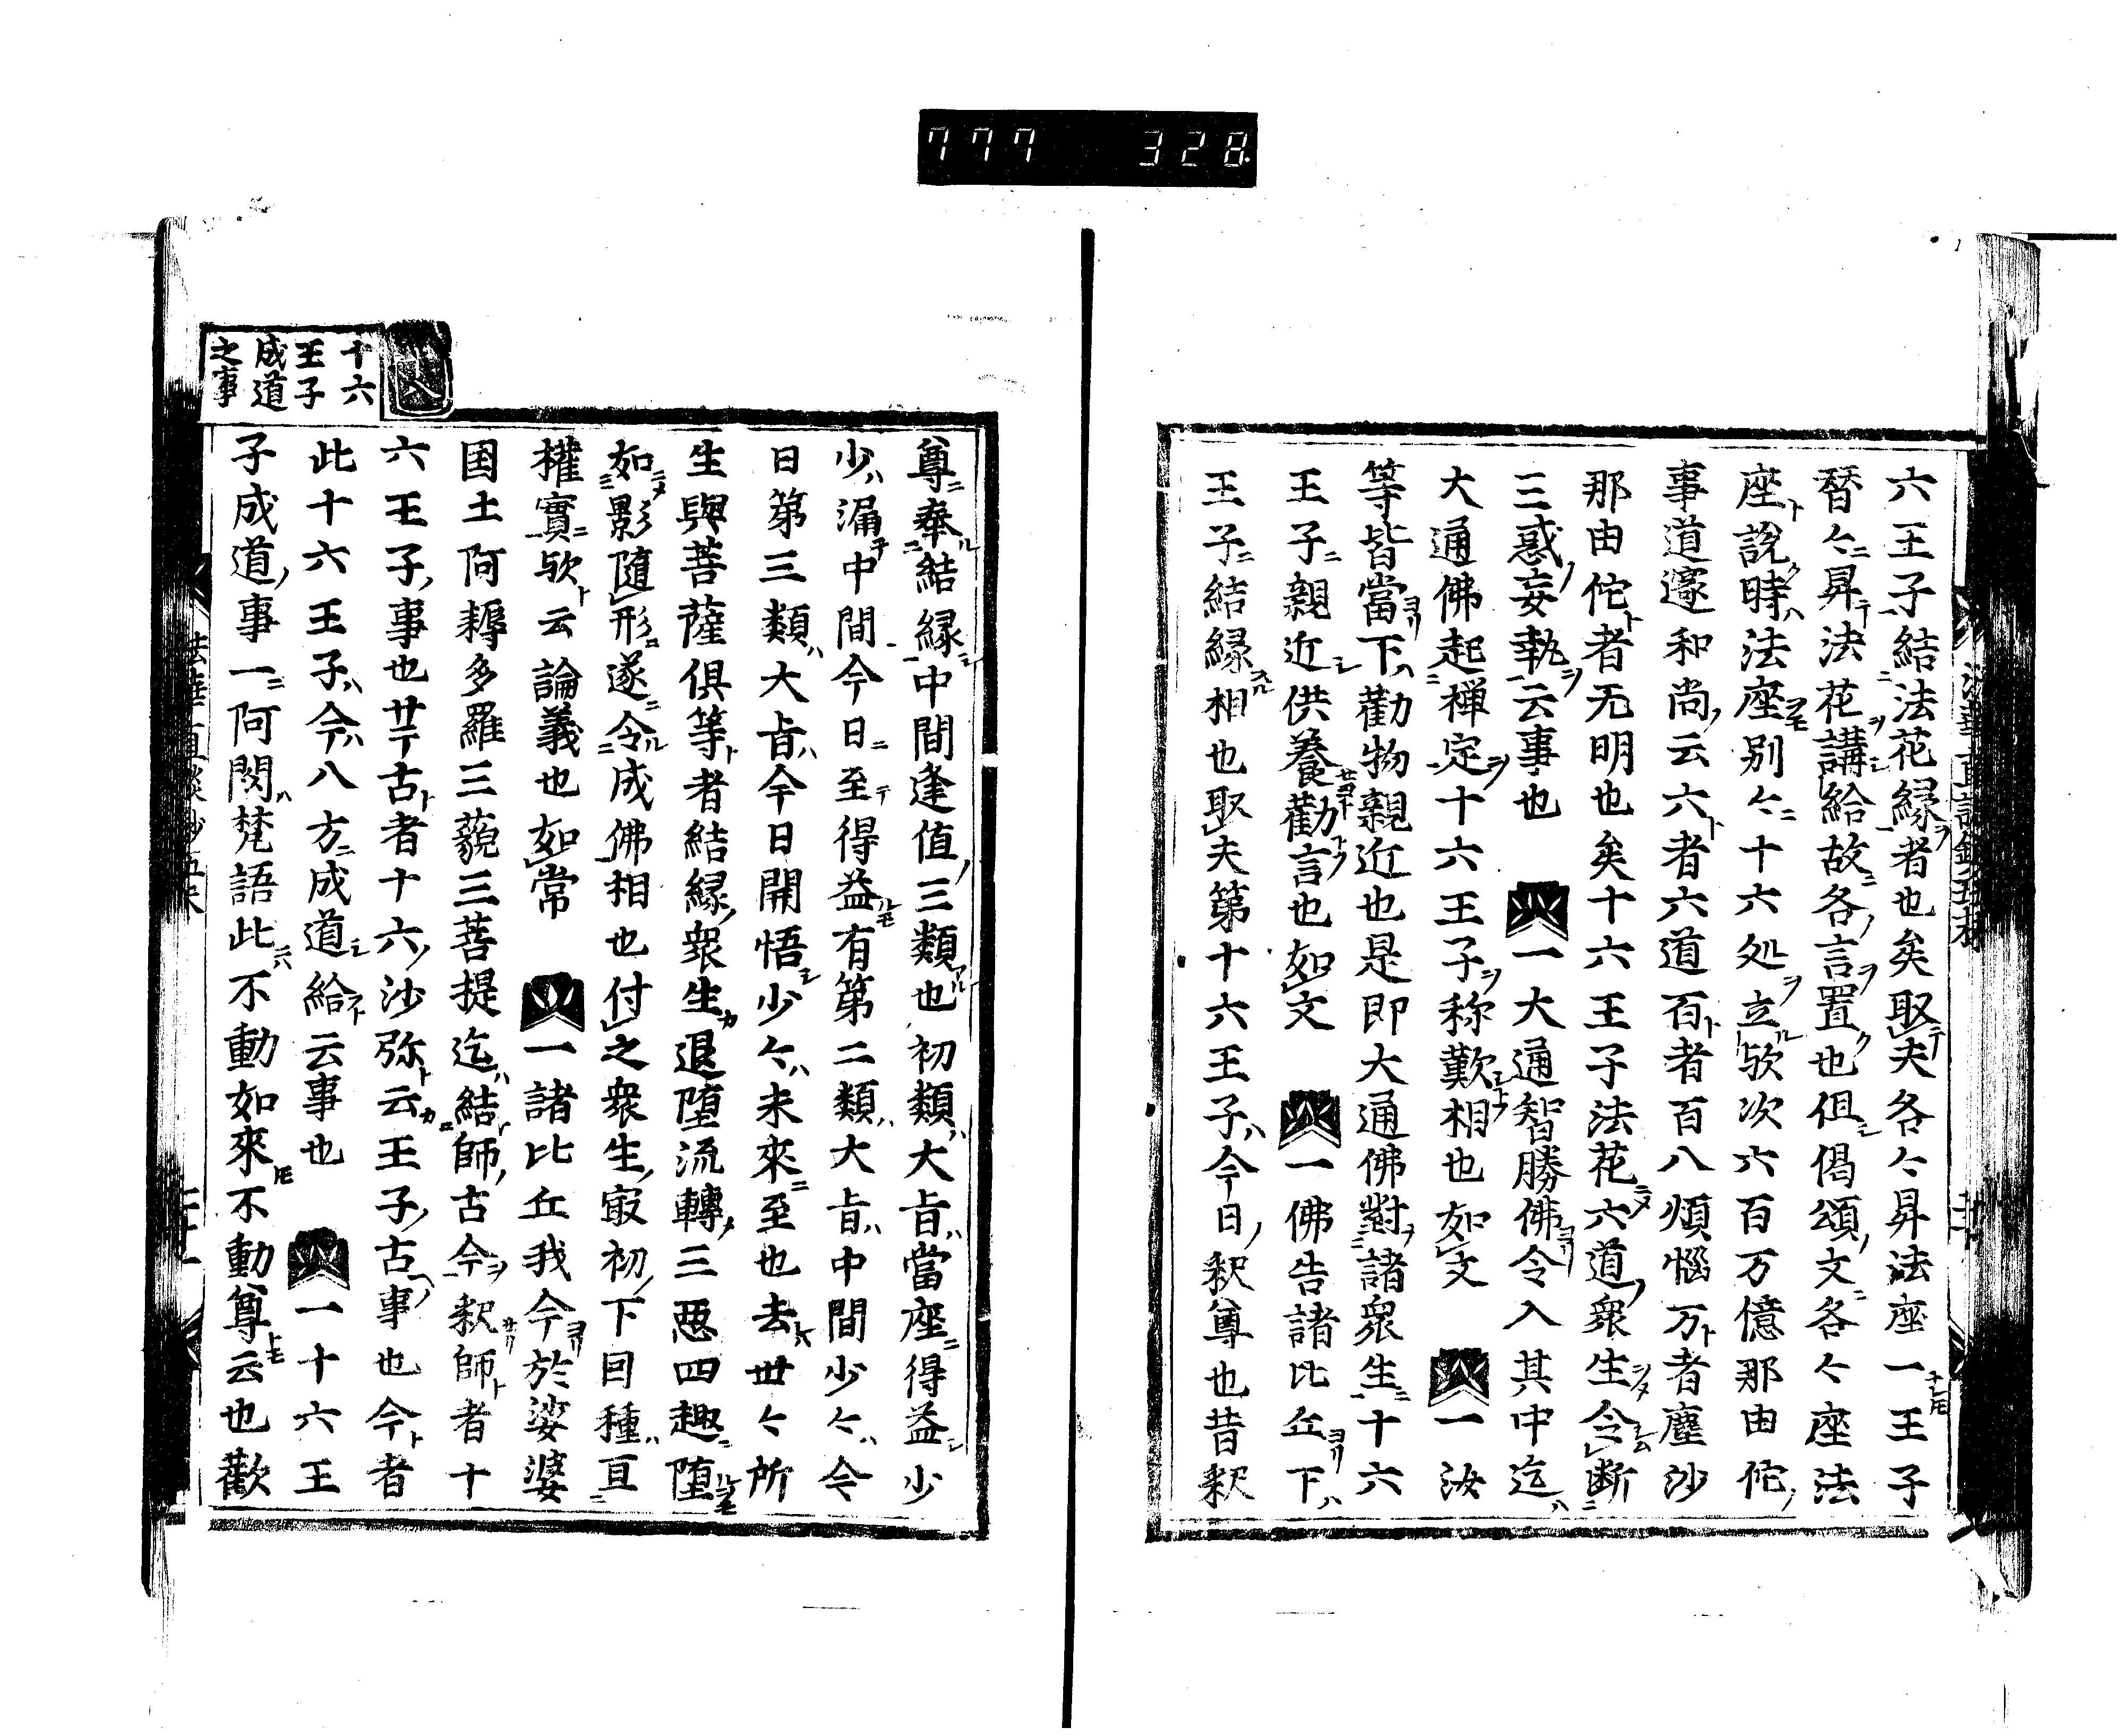 777 328
六王子結法花縁者也矣取夫各々昇法座一王子
替々昇法花講給故各言置也但偈頌文各々座法
座説時法座別々十六処立欤次六百万億那由佗
事道邃和尚云六者六道百者百八煩惱万者塵沙
那由佗者无明也矣十六王子法花六道衆生令断
三惑妄執云事也 一大通智勝佛令入其中迄
大通佛起禅定十六王子称歎相也如文 一汝
等皆當下勸物親近也是即大通佛對諸衆生十六
王子親近供養勸言也如文 一佛告諸比丘下
王子結縁相也取夫第十六王子今日釈尊也昔釈
尊奉結縁中間逢值三類也初類大旨當座得益少
少漏中間今日至得益有第二類大旨中間少々今
日第三類大旨今日開悟少々未來至也去世々所
生與菩薩俱等者結縁衆生退墮流轉三悪四趣墮
如影隨形遂令成佛相也付之衆生最初下因種亘
權實欤云論義也如常 一諸比丘我今於娑婆
国土阿耨多羅三藐三菩提迄結師古今釈師者十
六王子事也廿丁古者十六沙弥云王子古事也今者
此十六王子今八方成道給云事也 一十六王
子成道事一阿閦梵語此不動如來不動尊云也歡
十六
王子
成道
之事